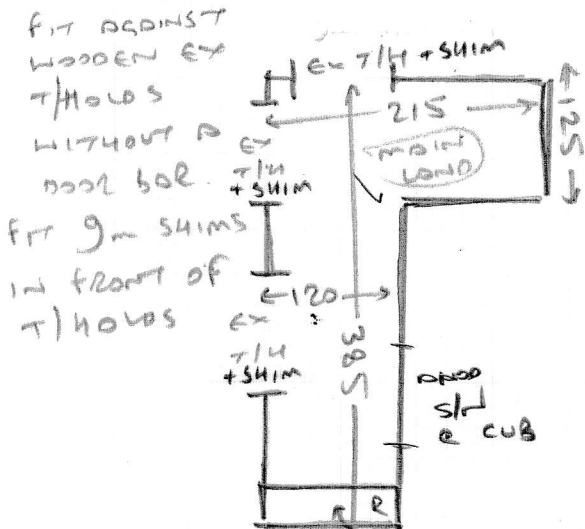 FIT AGAINST
WOODEN EX
T/HOLDS
WITHOUT A
DOOR BAR.
FIT 9m SHIMS
IN FRONT OF
T/HOLDS
EX T/H + SHIM
215
125
MAIN
LAND
EX
T/H
+ SHIM
120
385
EX
T/H
+ SHIM
S/H
@ CUB
R